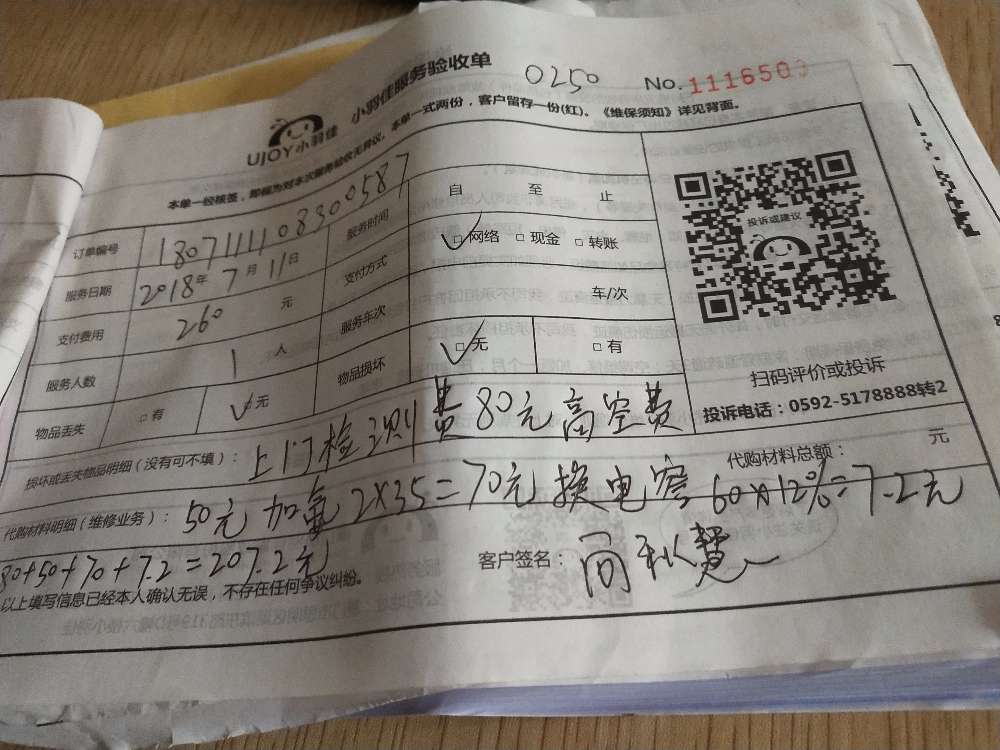 小羽佳服务验收单 0250 No.1116500
UJOY小羽佳
本单一经核签,即视为对本次服务验收无异议。本单一式两份,客户留存一份(红)。《维保须知》详见背面。
订单编号 1807111108300587 服务时间 自 至 止
服务日期 2018年7月11日 支付方式 □网络 □现金 □转账
支付费用 260 元 服务车次 车/次
服务人数 1 人 物品损坏 □无 □有
物品丢失 □有 □无
投诉或建议
扫码评价或投诉
投诉电话:0592-5178888转2
损坏或丢失物品明细(没有可不填): 上门检测费80元高空费
代购材料总额: 元
代购材料明细(维修业务): 50元 加氟2×35=70元 换电容60×12%=7.2元
80+50+70+7.2=207.2元
客户签名:
以上填写信息已经本人确认无误,不存在任何争议纠纷。